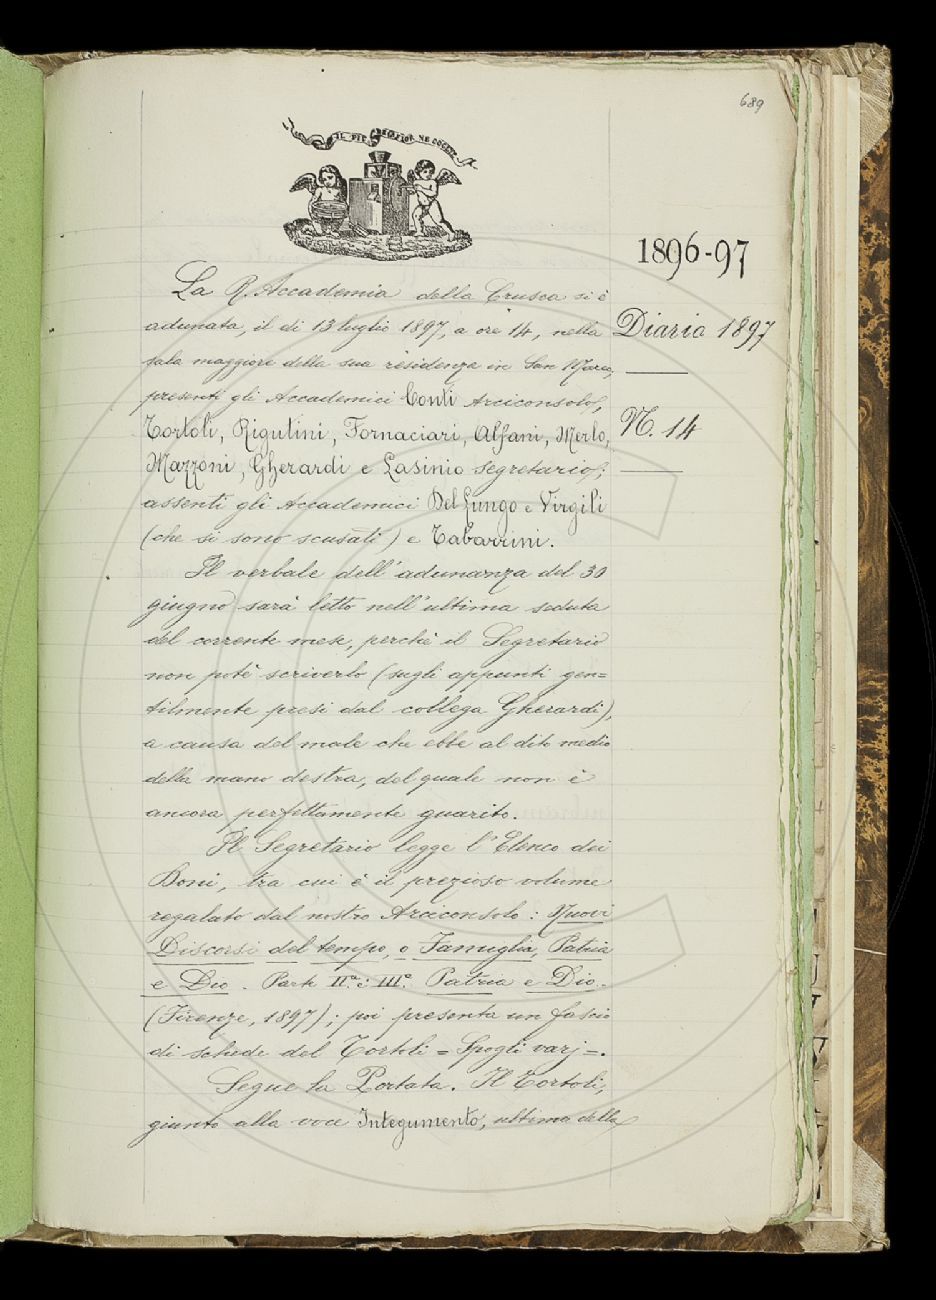 689
IL PIÙ BEL FIOR NE COGLIE
1896-97
Diario 1897
N. 14
La R. Accademia della Crusca si è
adunata, il dì 13 luglio 1897, a ore 14, nella
sala maggiore della sua residenza in San Marco,
presenti gli Accademici Conti Arciconsolo,
Tortoli, Rigutini, Fornaciari, Alfani, Merlo,
Mazzoni, Gherardi e Lasinio Segretario;
assenti gli Accademici Del Lungo e Virgilj
(che si sono scusati) e Tabarrini.
Il verbale dell'adunanza del 30
giugno sarà letto nell'ultima seduta
del corrente mese, perchè il Segretario
non potè scriverlo (sugli appunti gen=
tilmente presi dal collega Gherardi),
a causa del male che ebbe al dito medio
della mano destra, del quale non è
ancora perfettamente guarito.
Il Segretario legge l'Elenco dei
Doni, tra cui è il prezioso volume
regalato dal nostro Arciconsolo: Nuovi
Discorsi del tempo, o Famiglia, Patria
e Dio. Parte II.ª e III.ª Patria e Dio.
(Firenze, 1897); poi presenta un fascio
di schede del Tortoli = Spogli varj =.
Segue la Portata. Il Tortoli,
giunto alla voce Integumento, ultima della